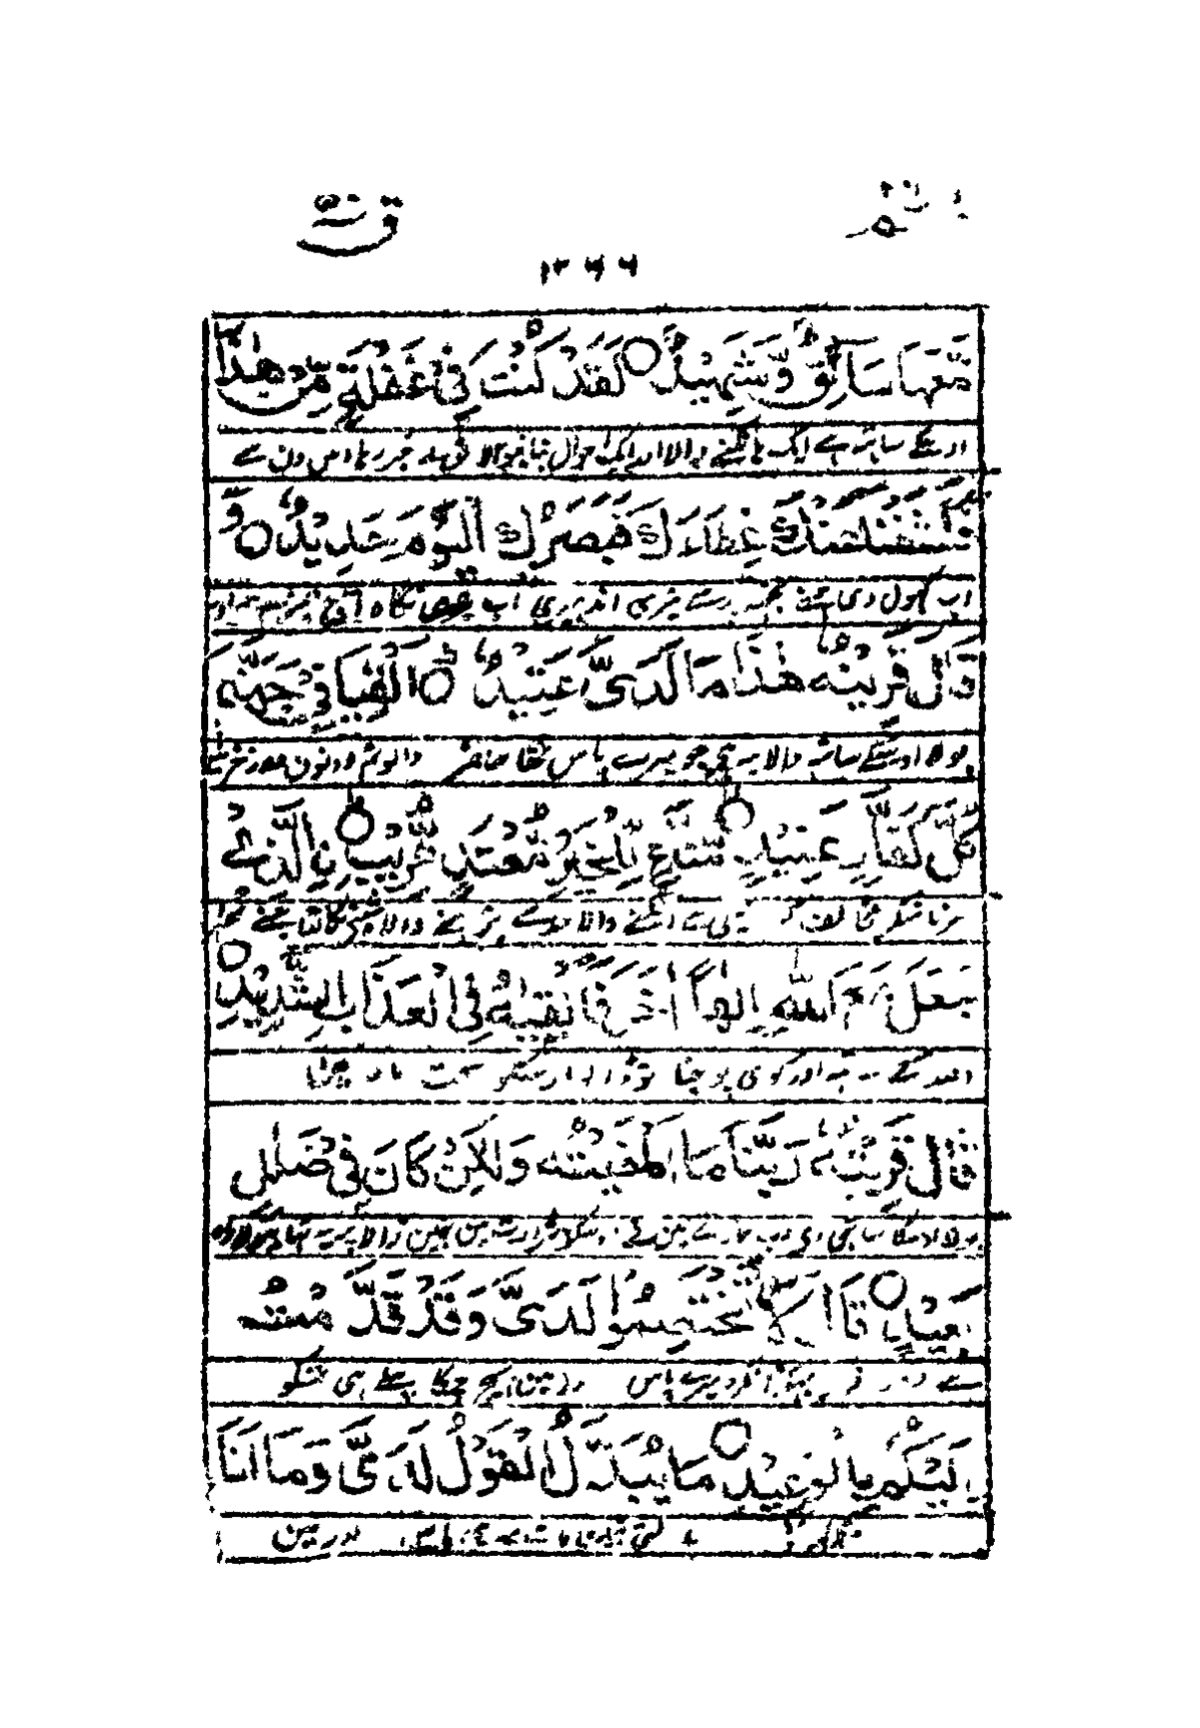 حٰمٓ
قٓ
١٢٦٦
مَّعَهَا سَآئِقٌ وَّشَهِيْدٌ ○ لَقَدْ كُنْتَ فِيْ غَفْلَةٍ مِّنْ هٰذَا
ایک ہانکنے والا اور ایک احوال بتانیوالا تو بے خبر رہا اس دن سے
فَكَشَفْنَا عَنْكَ غِطَآءَكَ فَبَصَرُكَ الْيَوْمَ حَدِيْدٌ ○ وَ
اب کھول دی تجھ پر سے تیری اندہیری اب تیری نگاہ آج تیز ہے اور
قَالَ قَرِيْنُهٗ هٰذَا مَا لَدَيَّ عَتِيْدٌ ○ اَلْقِيَا فِيْ جَهَنَّمَ
بولا اوسکے ساتھ والا یہ ہے جو میرے پاس تھا حاضر ڈالو تم دونوں دوزخ میں
كُلَّ كَفَّارٍ عَنِيْدٍ ○ مَّنَّاعٍ لِّلْخَيْرِ مُعْتَدٍ مُّرِيْبِ ○ نِ الَّذِيْ
ہر ناشکر مخالف کو نیکی سے اٹکنے والا حد سے بڑہنے والا
جَعَلَ مَعَ اللّٰهِ اِلٰهًا اٰخَرَ فَاَلْقِيٰهُ فِي الْعَذَابِ الشَّدِيْدِ ○
اللہ کے ساتھ اور کوئی پوجنا تو ڈالو اوسکو سخت مار میں
قَالَ قَرِيْنُهٗ رَبَّنَا مَا اَطْغَيْتُهٗ وَلٰكِنْ كَانَ فِيْ ضَلٰلٍ
بولا اوسکا ساتھی اے رب ہمارے میں نے اسکو شرارت میں نہیں ڈالا پر یہ تھا بھولا
بَعِيْدٍ ○ قَالَ لَا تَخْتَصِمُوْا لَدَيَّ وَقَدْ قَدَّمْتُ
جھگڑا نکرو میرے پاس اور میں بھیج چکا پہلے ہی تمکو
اِلَيْكُمْ بِالْوَعِيْدِ ○ مَا يُبَدَّلُ الْقَوْلُ لَدَيَّ وَمَا اَنَا
بدلتی نہیں بات میرے پاس اور میں